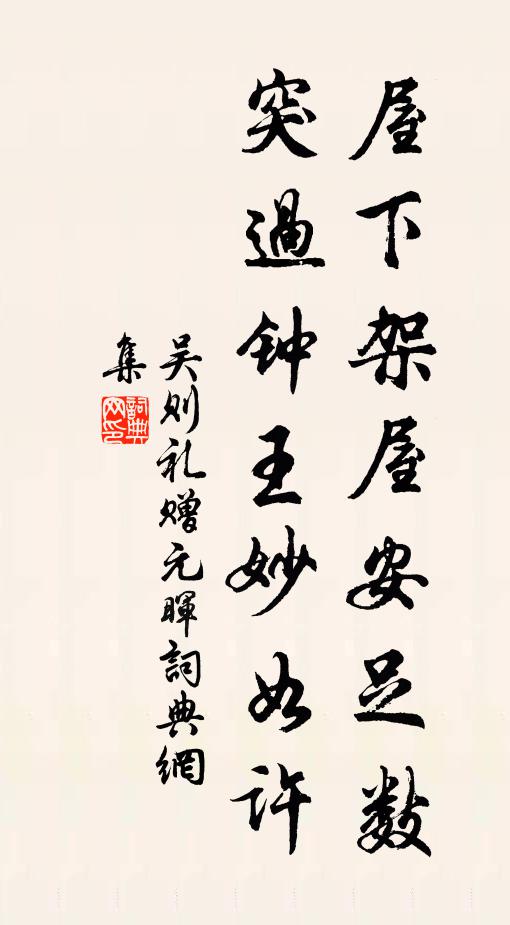 屋下架屋安足数
突過钟王妙如许
吴则礼赠元暉詞典網
集
詞典
网印